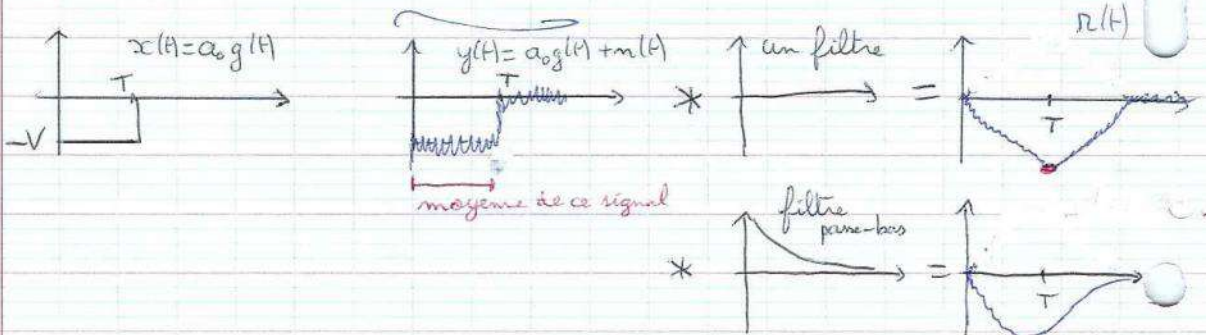 x(t) = a₀ g(t)
T
-V
y(t) = a₀ g(t) + n(t)
T
moyenne de ce signal
*
un filtre
=
r(t)
T
*
filtre
passe-bas
=
T